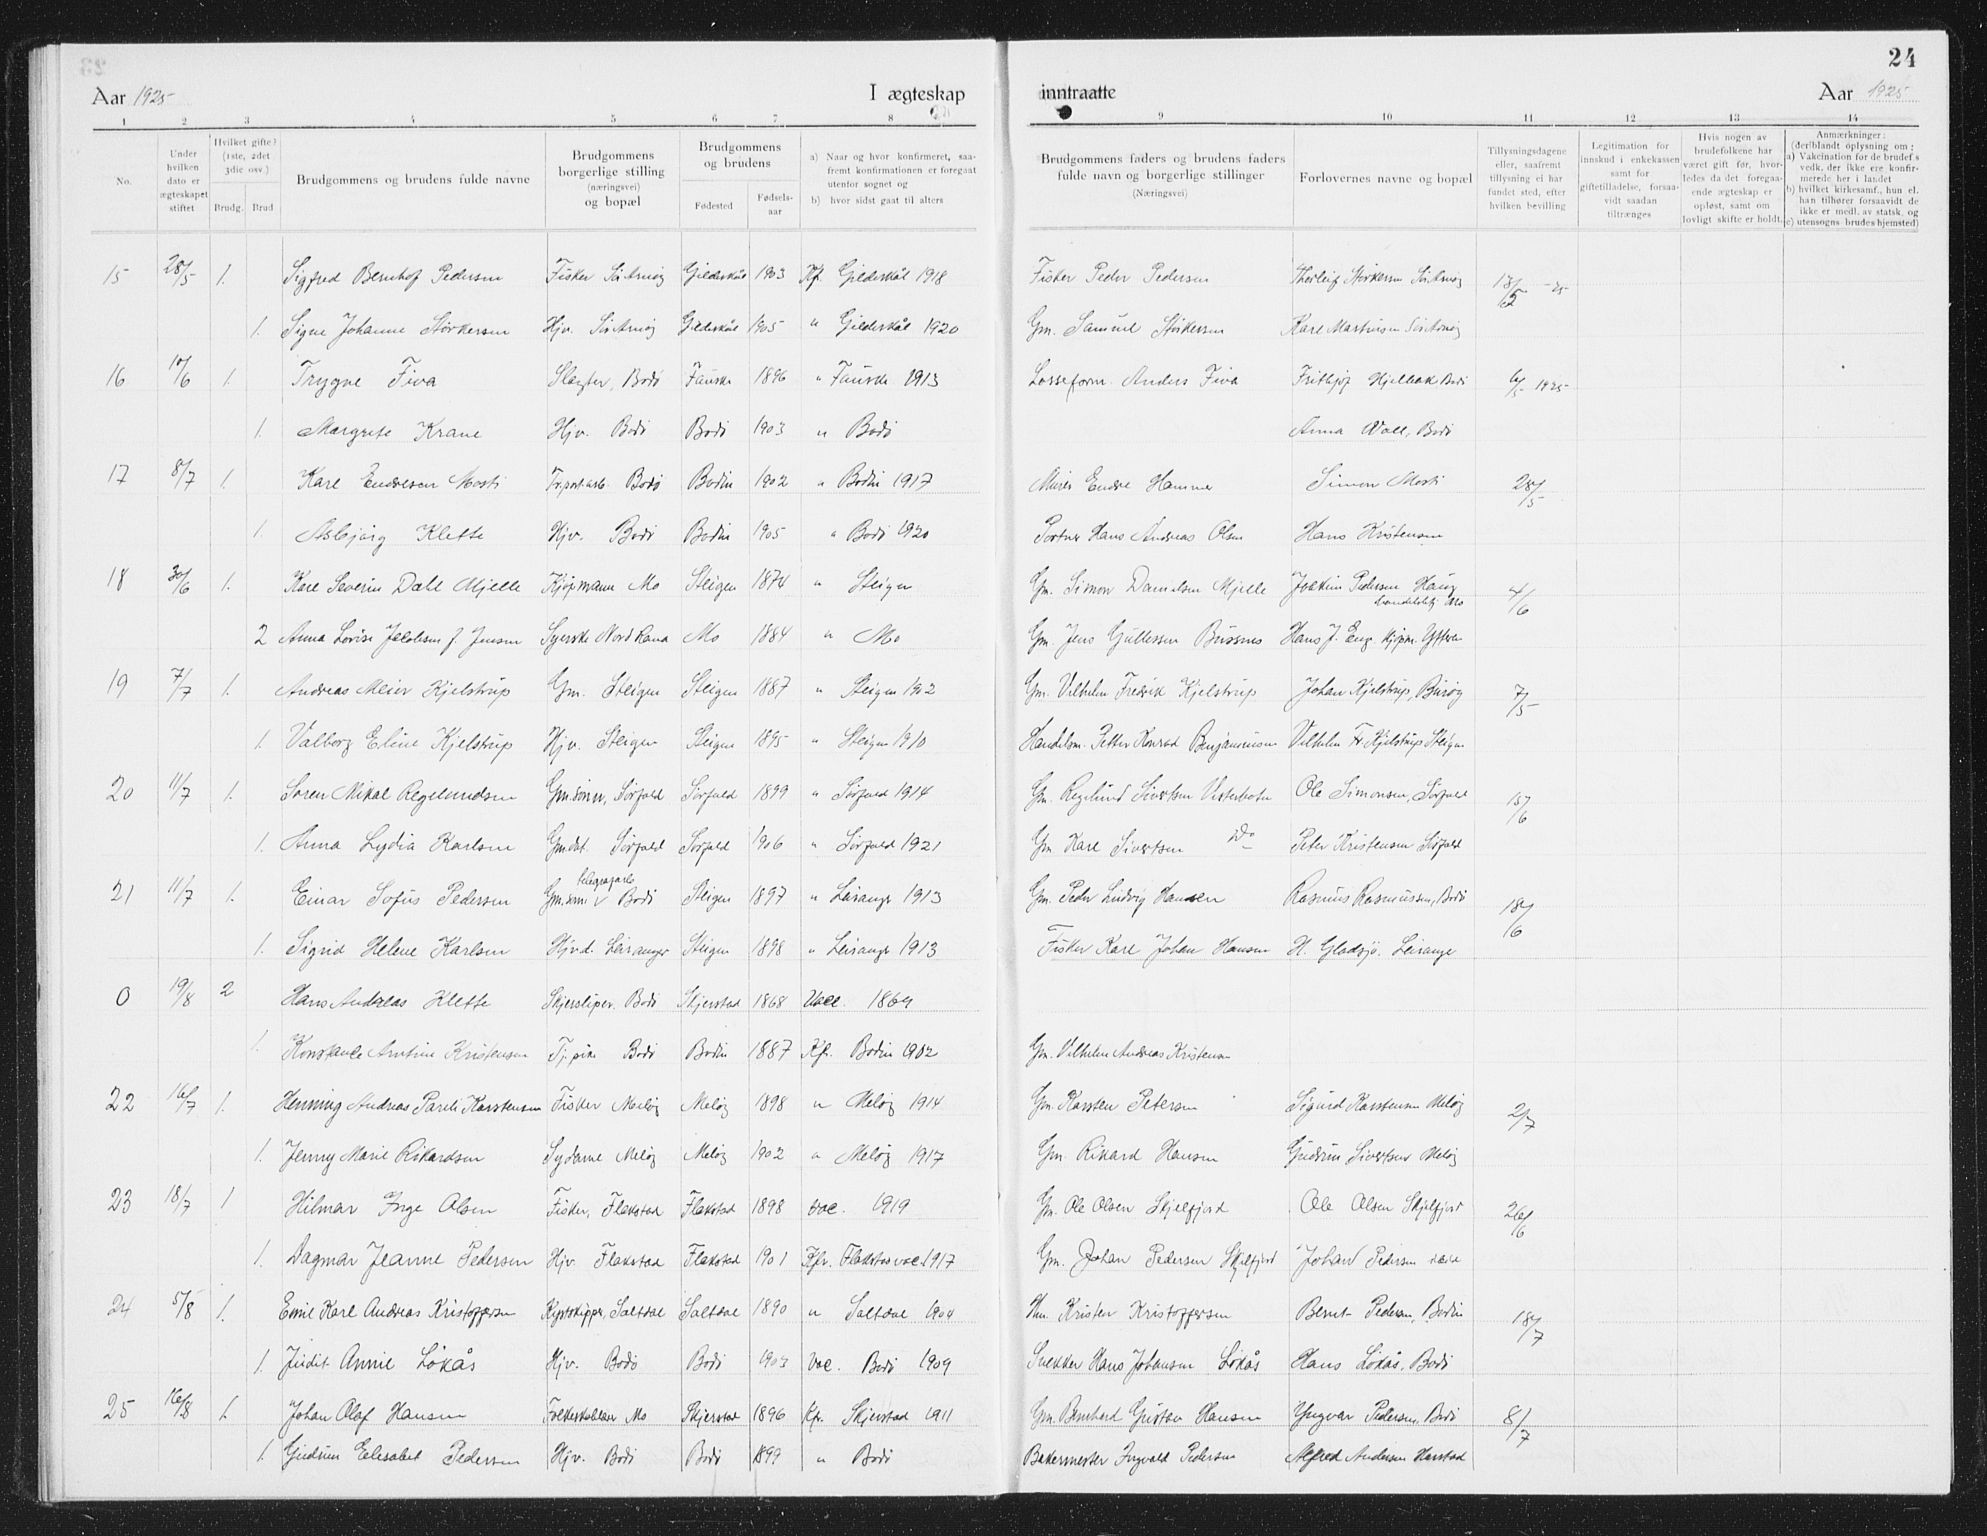 24
Aar 1925 I ægteskap inntraatte Aar 1925
1 2 3 4 5 6 7 8 9 10 11 12 13 14
No.
Under hvilken dato er ægteskapet stiftet
Hvilket gifte? (1ste, 2det 3die osv.)
Brudg. Brud
Brudgommens og brudens fulde navne
Brudgommens borgerlige stilling (næringsvei) og bopæl
Brudgommens og brudens
Fødested Fødsels-aar
a) Naar og hvor konfirmeret, saafremt konfirmationen er foregaat utenfor sognet og
b) hvor sidst gaat til alters
Brudgommens faders og brudens faders fulde navn og borgerlige stillinger (Næringsvei)
Forlovernes navne og bopæl
Tillysningsdagene eller, saafremt tillysning ei har fundet sted, efter hvilken bevilling
Legitimation for innskud i enkekassen samt for giftetilladelse, forsaavidt saadan tiltrænges
Hvis nogen av brudefolkene har været gift før, hvorledes da det foregaaende ægteskap er opløst, samt om lovligt skifte er holdt.
Anmærkninger: (deriblandt oplysning om:
a) Vakcination for de brudef.s vedk. der ikke ere konfirmerede her i landet
b) hvilket kirkesamf. hun el. han tilhører forsaavidt de ikke er medl. av statsk. og
c) utensogns brudes hjemsted)
15 28/5 1. Sigfred Bernhof Pedersen Fisker Sør Arnøy Gildeskål 1903 Kf. Gildeskål 1918 Fisker Peder Pedersen Thorleif Størkersen Sør Arnøy 18/5 -25
1. Signe Johanne Størkersen Hjv. Sør Arnøy Gildeskål 1905 " Gildeskål 1920 Gm. Samuel Størkersen Karl Martinsen Sør Arnøy
16 10/6 1. Trygve Fiva Slagter, Bodø Fauske 1896 " Fauske 1913 Losseform. Anders Fiva Frithjof Bodø 6/5 1925
1. Margrete Krane Hjv. Bodø Bodø 1903 " Bodø Anna Wall, Bodø
17 8/7 1. Karl Endresen Mosti Tr.port.arb. Bodø Bodin 1902 " Bodin 1917 Murer Endre Hammer Simon Mosti 28/5
1. Asbjørg Klette Hjv. Bodø Bodin 1905 " Bodø 1920 Portner Hans Andreas Olsen Hans Kristensen
18 30/6 1. Karl Severin Dahl Mjelle Kjøpmann Mo Steigen 1874 " Steigen Gm. Simon Danielsen Mjelle Joakim Pedersen Haug handelsbetj. Mo 4/6
2 Anna Lovise Jacobsen f. Jensen Syerske Nord Rana Mo 1884 " Mo Gm. Jens Gullessen Bussnes Hans J. Eng. kjøpm. Ytteren
19 7/7 1. Andreas Meier Kjelstrup Gm. Steigen Steigen 1887 " Steigen 1902 Gm. Vilhelm Fredrik Kjelstrup Johan Kjelstrup, Burøy 7/5
1. Valborg Eline Kjelstrup Hjv. Steigen Steigen 1895 " Steigen 1910 Handelsm. Petter Konrad Benjaminsen Vilhelm Fr. Kjelstrup Steigen
20 11/7 1. Søren Mikal Regelundsen Gm.sønn, Sørfold Sørfold 1899 " Sørfold 1914 Gm. Regelund Sivertsen Vesterbotn Ole Simonsen, Sørfold 15/6
1. Anna Lydia Karlsen Gm.dat. Sørfold Sørfold 1906 " Sørfold 1921 Gm Karl Sivertsen Do Peter Kristensen Sørfold
21 11/7 1. Einar Sofus Pedersen Gm.sønn telegrafarb Bodø Steigen 1897 " Leiranger 1913 Gm. Peder Ludvig Hansen Rasmus Rasmussen, Bodø 18/6
1. Sigrid Helene Karlsen Hjvd. Leiranger Steigen 1898 " Leiranger 1913 Fisker Karl Johan Hansen H. Gladsjø. Leirange
0 19/8 2 Hans Andreas Klette Skjersliper. Bodø Skjerstad 1868 Vacc. 1869
1. Konstance Arntine Kristensen Tj.pike Bodø Bodin 1887 Kf. Bodin 1902 Gm. Vilhelm Andreas Kristensen
22 16/7 1. Henning Andreas Pareli Karstensen Fisker Meløy Meløy 1898 " Meløy 1914 Gm. Karsten Petersen Sigurd Karstensen Meløy 2/7
1. Jenny Marie Rikardsen Sydame Meløy Meløy 1902 " Meløy 1917 Gm. Rikard Hansen Gudrun Sivertsen Meløy
23 18/7 1 Hilmar Inge Olsen Fisker, Flakstad Flakstad 1898 vac. 1919 Gm. Ole Olsen Skjelfjord Ole Olsen Skjelfjord 26/6
1. Dagmar Jeanne Pedersen Hjv. Flakstad Flakstad 1901 Kfr. Flakstad vac. 1917 Gm. Johan Pedersen Skjelfjord Johan Pedersen
24 5/8 1. Emil Karl Andreas Kristoffersen Kystskipper, Saltdal Saltdal 1890 " Saltdal 1904 Hm. Krister Kristoffersen Bernt Pedersen, Bodin 18/7
1. Judit Annie Løkås Hjv. Bodø Bodø 1903 Vac. Bodø 1909 Snekker Hans Johansen Løkås Hans Løkås, Bodø
25 16/8 1. Johan Olaf Hansen Folkeskolelær. Mo Skjerstad 1896 Kf. Skjerstad 1911 Gm. Bernhard Gustav Hansen Yngvar Pedersen, Bodø 8/7
1. Gudrun Elisabet Pedersen Hjv. Bodø Bodø 1899 " Bodø Bakermester Ingvald Pedersen Alfred Andersen Harstad